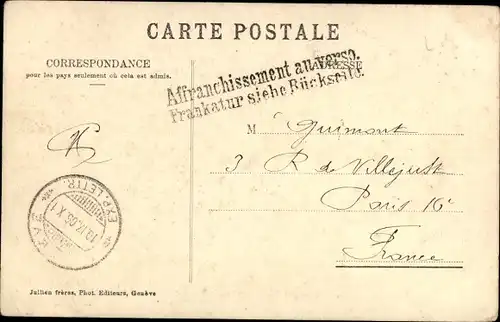 CARTE POSTALE
CORRESPONDANCE
pour les pays seulement où cela est admis.
Affranchissement au verso.
Frankatur siehe Rückseite.
ADRESSE
M Guimont
3 R de Villejust
Paris 16e
France
EXP. LETTR.
Jullien frères, Phot. Editeurs, Genève